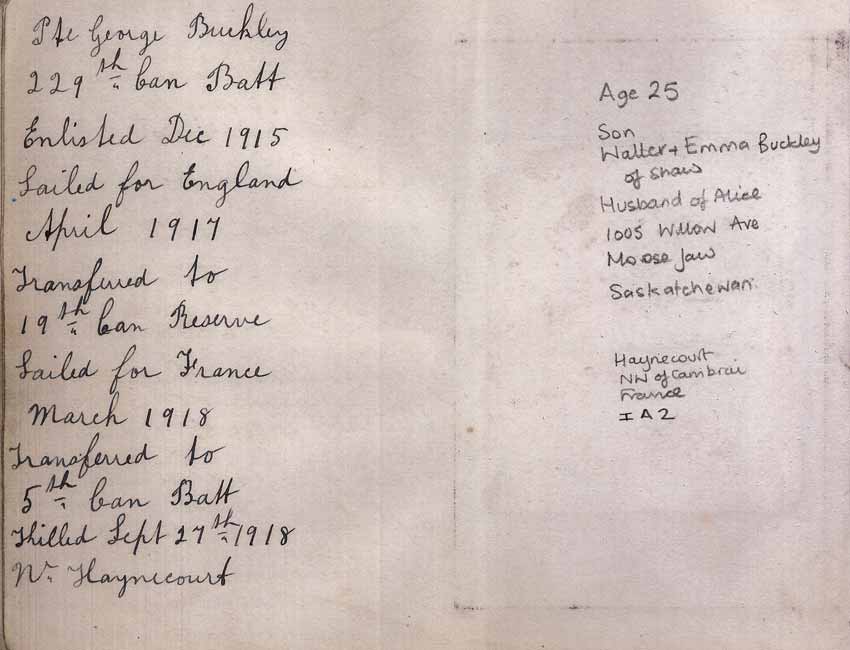 Pte George Buckley
229th Can Batt
Enlisted Dec 1915
Sailed for England
April 1917
Transferred to
19th Can Reserve
Sailed for France
March 1918
Transferred to
5th Can Batt
Killed Sept 27th 1918
Nr Haynecourt
Age 25
Son
Walter + Emma Buckley
of Shaw
Husband of Alice
1005 Willow Ave
Moose Jaw
Saskatchewan.
Haynecourt
NW of Cambrai
France
I A 2